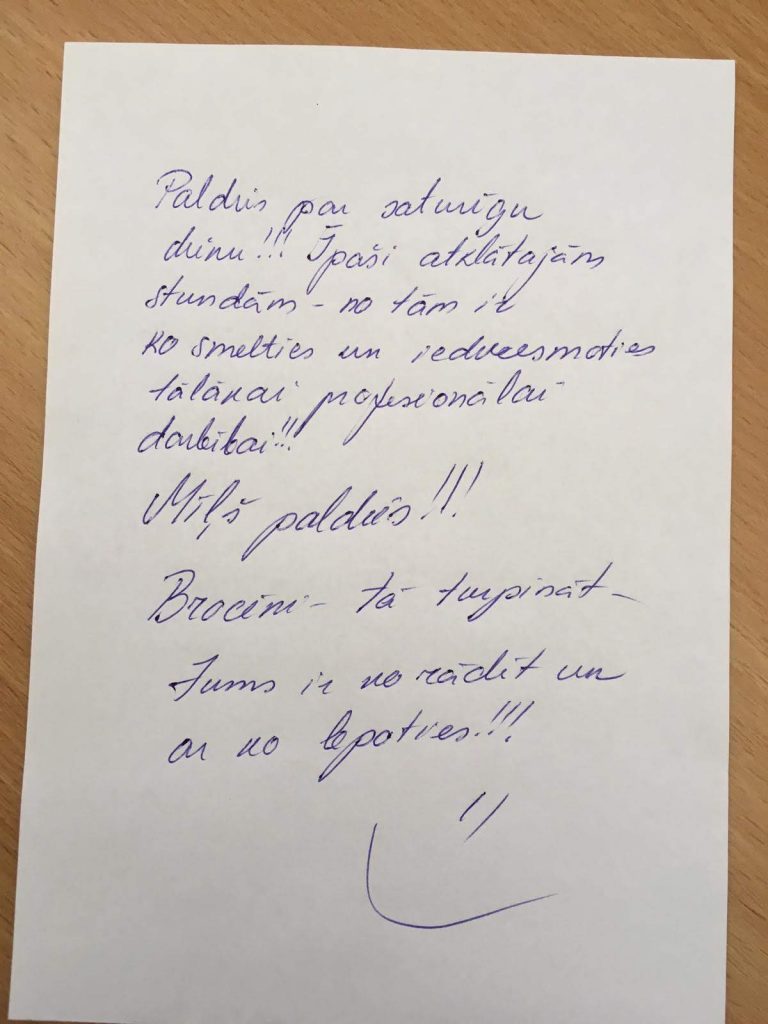 Paldies par saturīgu
dienu!!! Īpaši atklātajām
stundām - no tām ir
ko smelties un iedvesmoties
tālākai profesionālai
darbībai!!!
Mīļš paldies!!!
Brocēni - tā turpināt -
Jums ir ko rādīt un
ar ko lepoties!!!